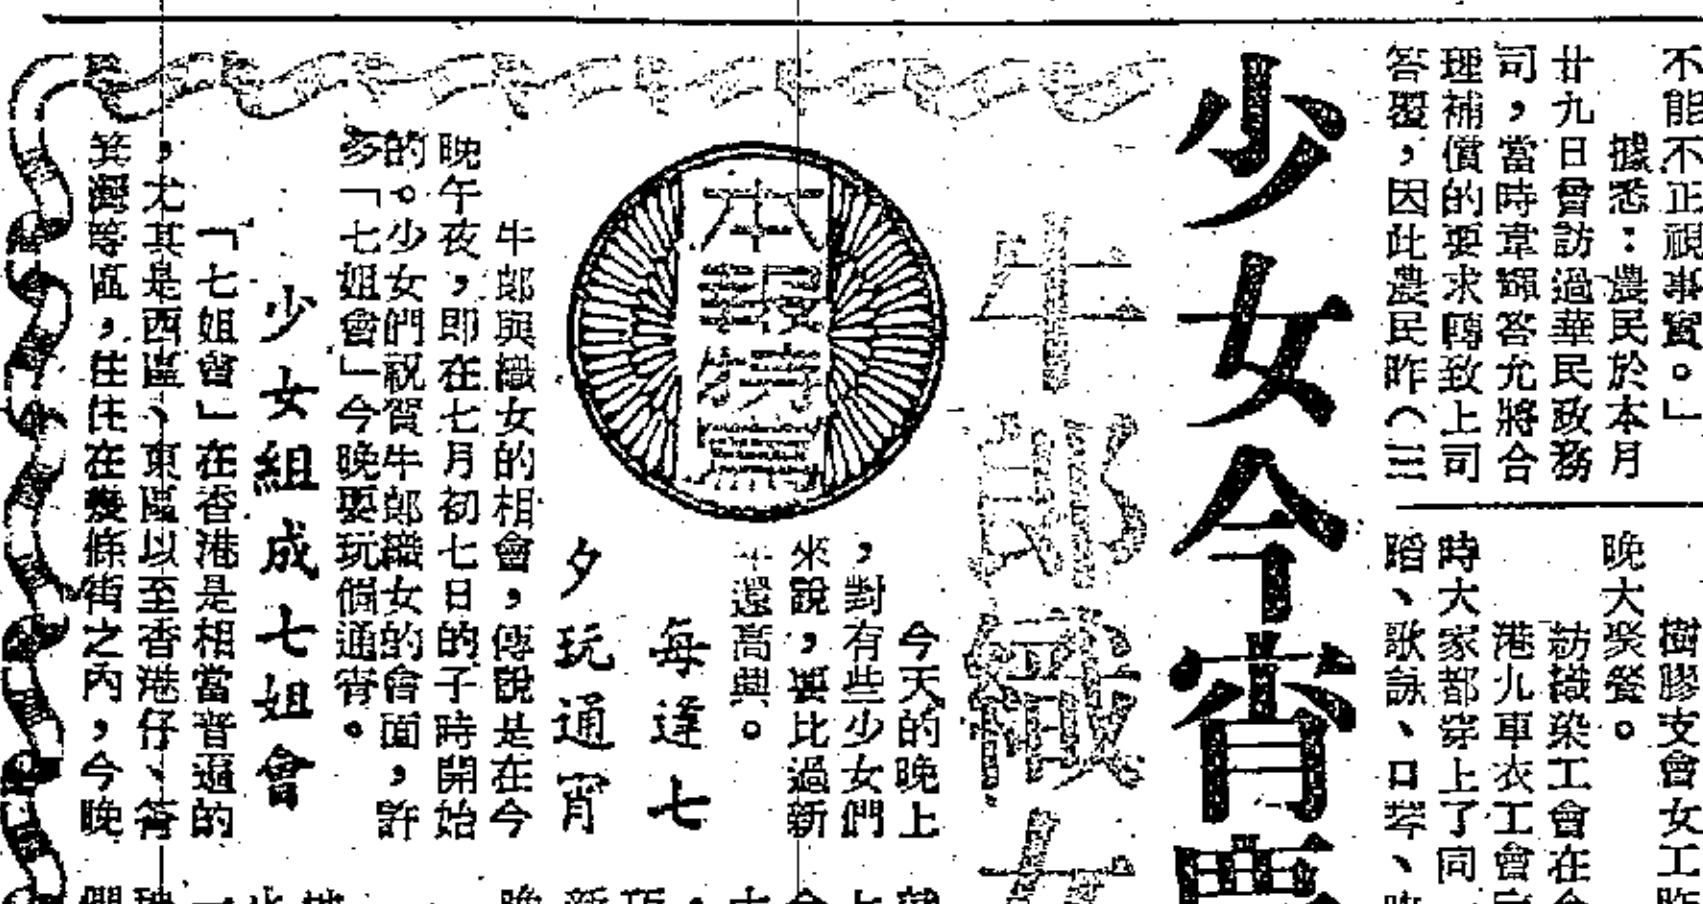 不能不正視事實。」
據悉：農民於本月
廿九日曾訪過華民政務
司，當時韋輝答允將合
理補償的要求轉致上司
答覆，因此農民昨（三
樹膠支會女工昨
晚大聚餐。
紡織染工會在
港九車衣工會
時大家都穿上了同
蹈、歌詠、口琴、
少女今宵
牛郎織女
本報特
今天的晚上
，對有些少女們
來說，要比過新
年還高興。
每逢七
夕玩通宵
牛郎與織女的相會，傳說是在今
晚午夜，即在七月初七日的子時開始
的。少女們祝賀牛郎織女的會面，許
多「七姐會」今晚要玩個通宵。
少女組成七姐會
「七姐會」在香港是相當普遍的
，尤其是西區、東區以至香港仔、筲
箕灣等區，往往在幾條街之內，今晚